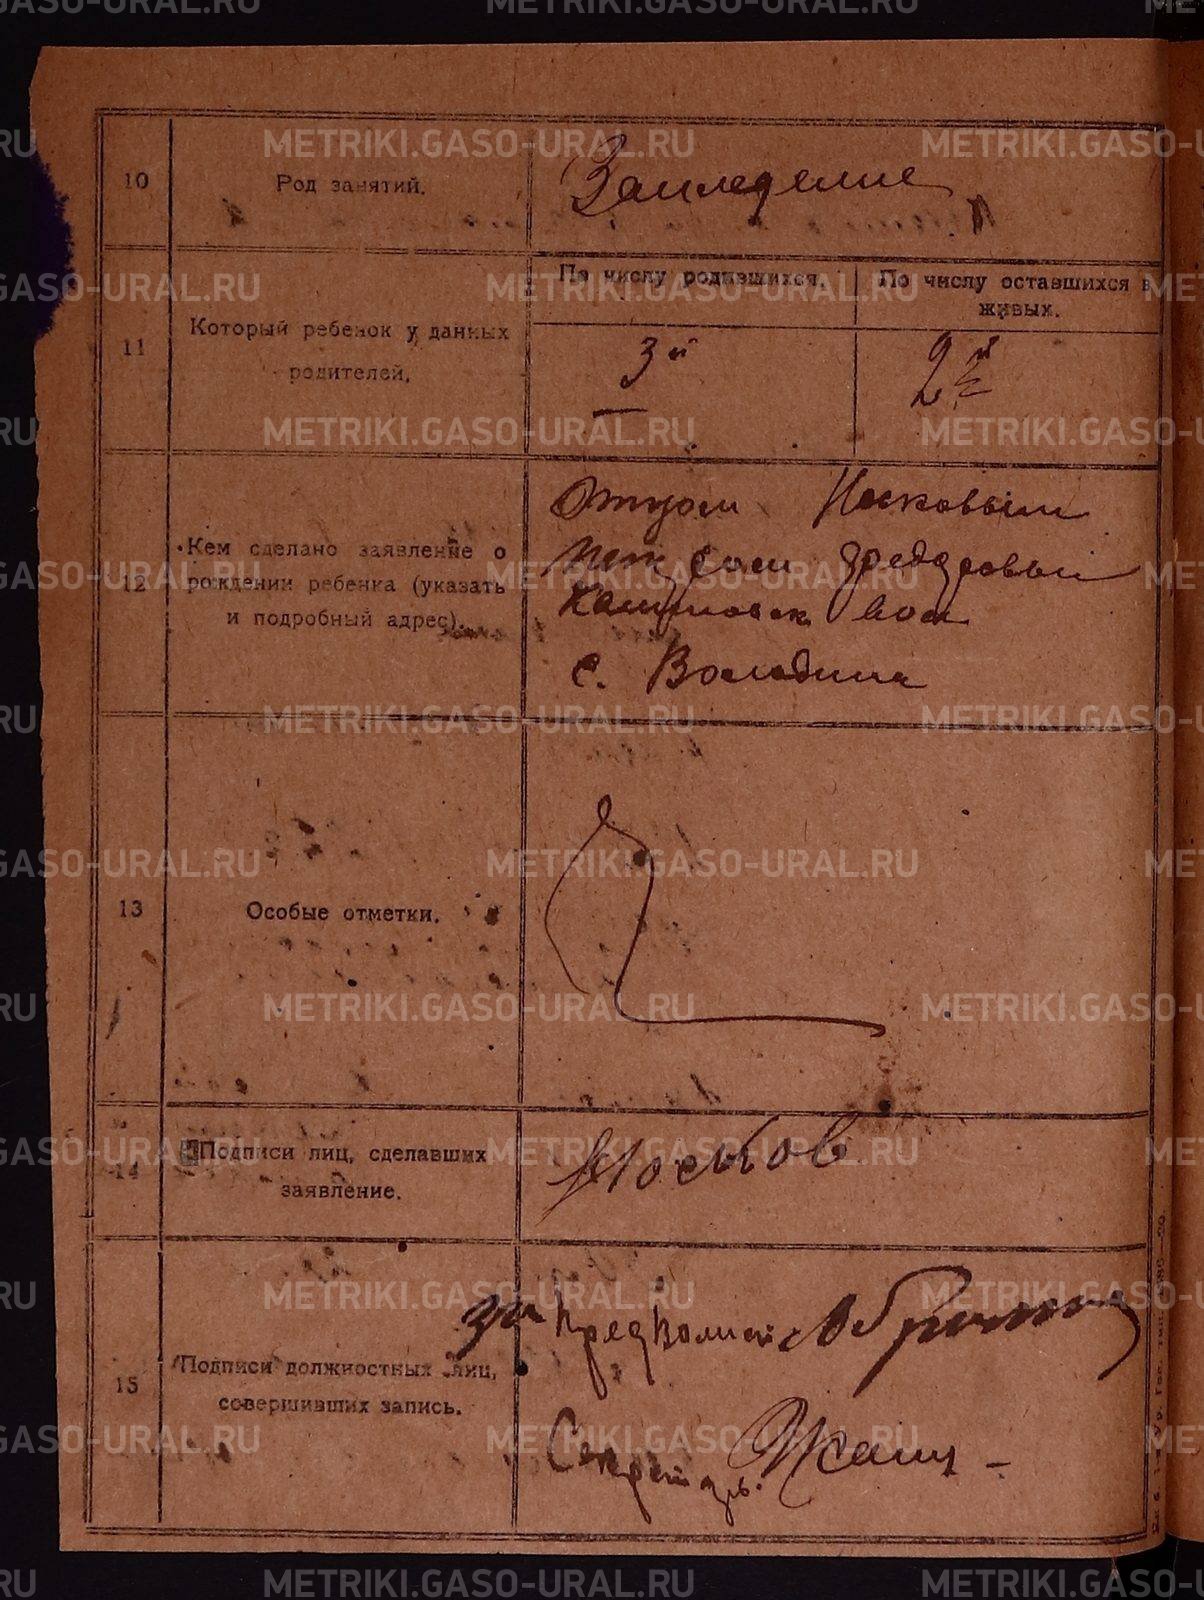 METRIKI.GASO-URAL.RU
10
Род занятий.
Земледелие
11
Который ребенок у данных
родителей.
По числу родившихся.
По числу оставшихся в
живых.
3й
2й
12
Кем сделано заявление о
рождении ребенка (указать
и подробный адрес).
Отцом Носковым
Федоровым
вол
с. Володина
13
Особые отметки.
14
Подписи лиц, сделавших
заявление.
Носков
15
Подписи должностных лиц,
совершивших запись.
За Предволис
Секретарь